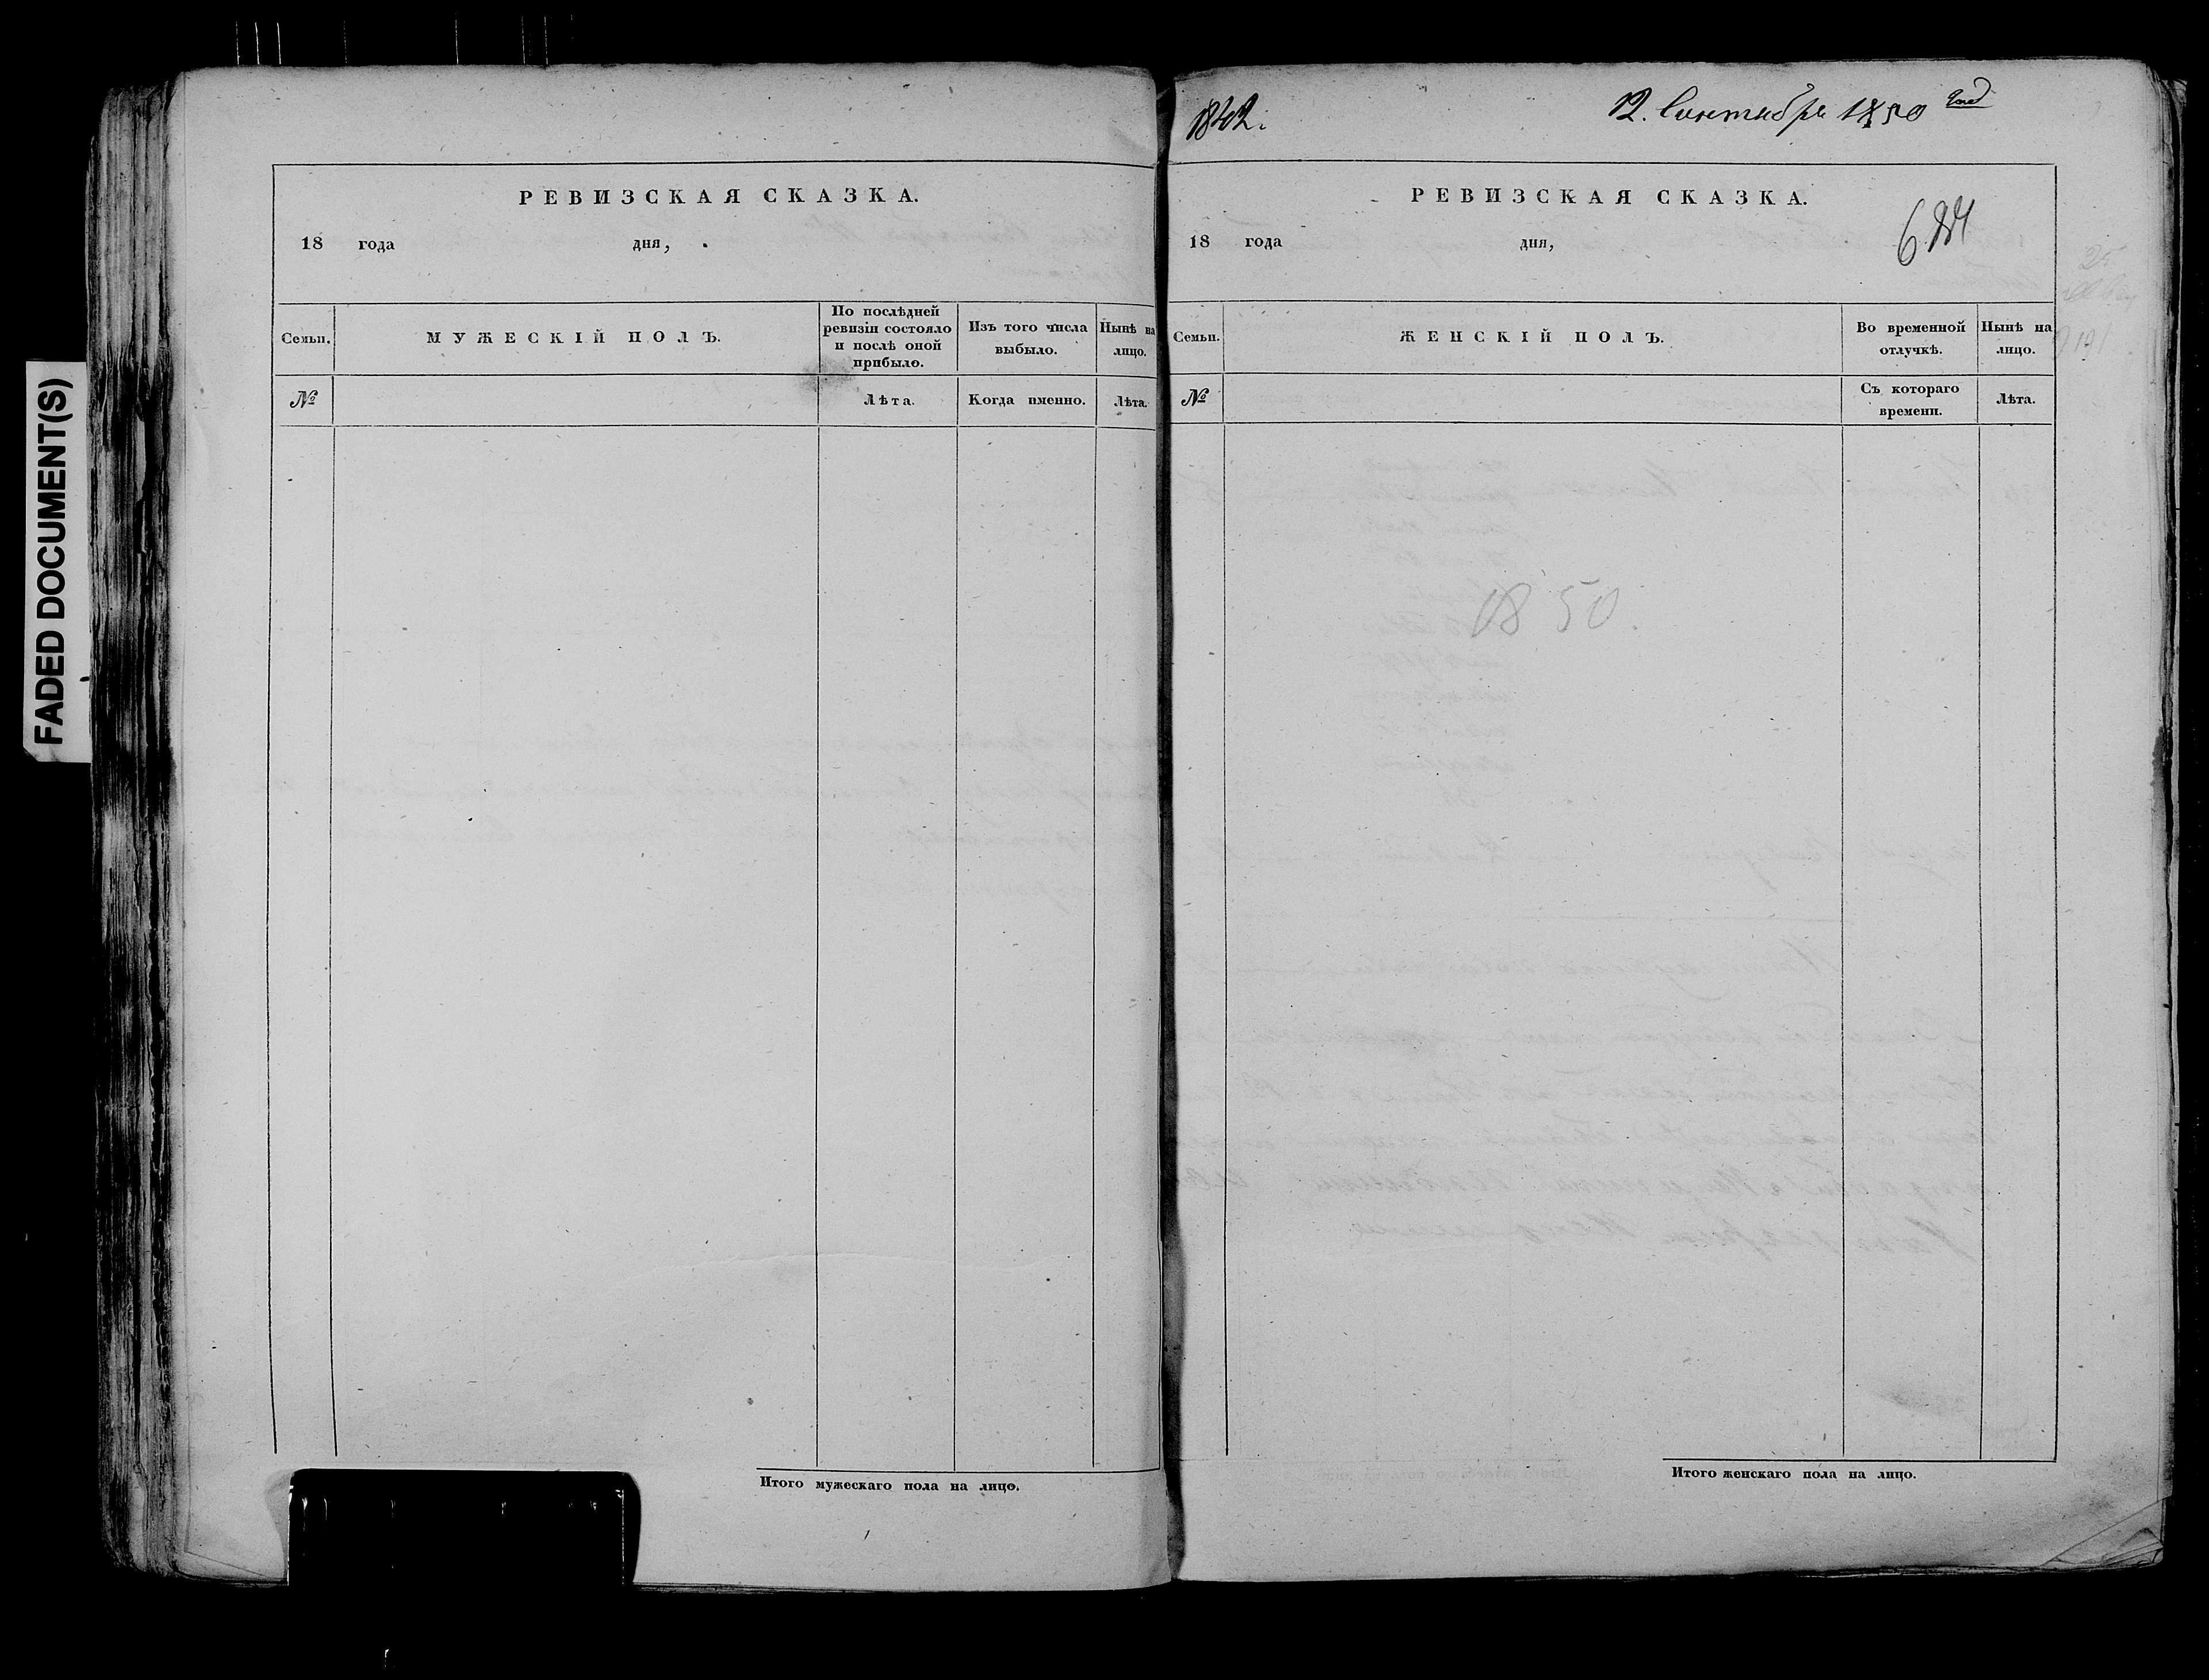 FADED DOCUMENT(S)
РЕВИЗСКАЯ СКАЗКА.
18 года дня,
Семьи.
МУЖЕСКІЙ ПОЛЪ.
По послѣдней
ревизіи состояло
и послѣ оной
прибыло.
Изъ того числа
выбыло.
Нынѣ на
лицо.
№
Лѣта.
Когда именно.
Лѣта.
Итого мужескаго пола на лицо.
12. Сентября 1850 год
РЕВИЗСКАЯ СКАЗКА.
18 года дня,
Семьи.
ЖЕНСКІЙ ПОЛЪ.
Во временной
отлучкѣ.
Нынѣ на
лицо.
№
Съ котораго
времени.
Лѣта.
1850.
Итого женскаго пола на лицо.